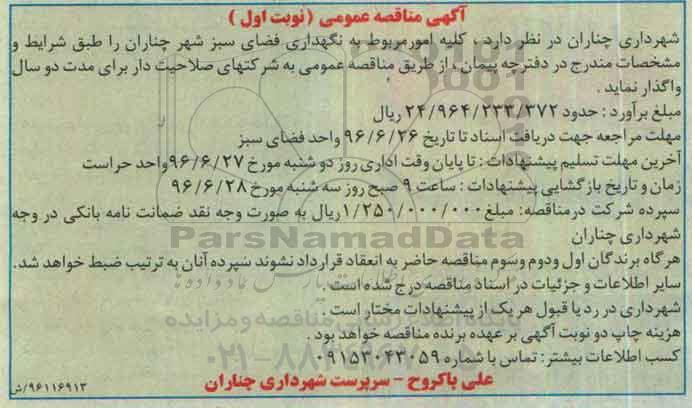 آگهی مناقصه عمومی (نوبت اول)
شهرداری چناران در نظر دارد ، کلیه امور مربوط به نگهداری فضای سبز شهر چناران را طبق شرایط و
مشخصات مندرج در دفترچه پیمان ، از طریق مناقصه عمومی به شرکتهای صلاحیت دار برای مدت دو سال
واگذار نماید .
مبلغ برآورد : حدود ۲۴/۹۶۴/۲۳۳/۳۷۲ ریال
مهلت مراجعه جهت دریافت اسناد تا تاریخ ۹۶/۶/۲۶ واحد فضای سبز
آخرین مهلت تسلیم پیشنهادات : تا پایان وقت اداری روز دو شنبه مورخ ۹۶/۶/۲۷ واحد حراست
زمان و تاریخ بازگشایی پیشنهادات : ساعت ۹ صبح روز سه شنبه مورخ ۹۶/۶/۲۸
سپرده شرکت در مناقصه: مبلغ ۱/۲۵۰/۰۰۰/۰۰۰ ریال به صورت وجه نقد ضمانت نامه بانکی در وجه
شهرداری چناران
ParsNamadData
هر گاه برندگان اول و دوم و سوم مناقصه حاضر به انعقاد قرارداد نشوند سپرده آنان به ترتیب ضبط خواهد شد.
سایر اطلاعات و جزئیات در اسناد مناقصه درج شده است .
شهرداری در رد یا قبول هر یک از پیشنهادات مختار است .
هزینه چاپ دو نوبت آگهی بر عهده برنده مناقصه خواهد بود .
کسب اطلاعات بیشتر : تماس با شماره ۰۹۱۵۳۰۴۳۰۵۹
علی پاکروح - سرپرست شهرداری چناران
۹۶۱۱۶۹۱۳/ش